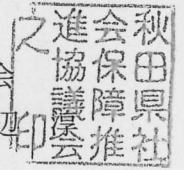 秋田県社
会保障推
進協議会
之印